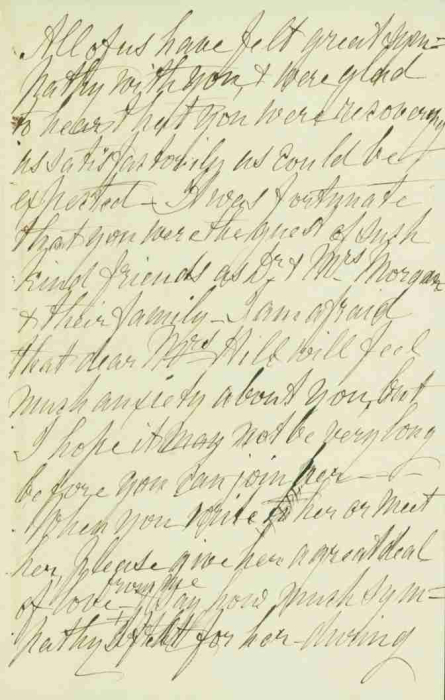 All of us have felt great sym=
pathy with you, & were glad
to hear that you were recovering
as satisfactorily as could be
expected – It was fortunate
that you were the guest of such
kind friends as Dr & Mrs Morgan
& their family – I am afraid
that dear Mrs Hill will feel
much anxiety about you, but
I hope it may not be very long
before you can join her –
When you write to her or meet
her, please give her a great deal
of love from me & say how much sym=
pathy I felt for her during